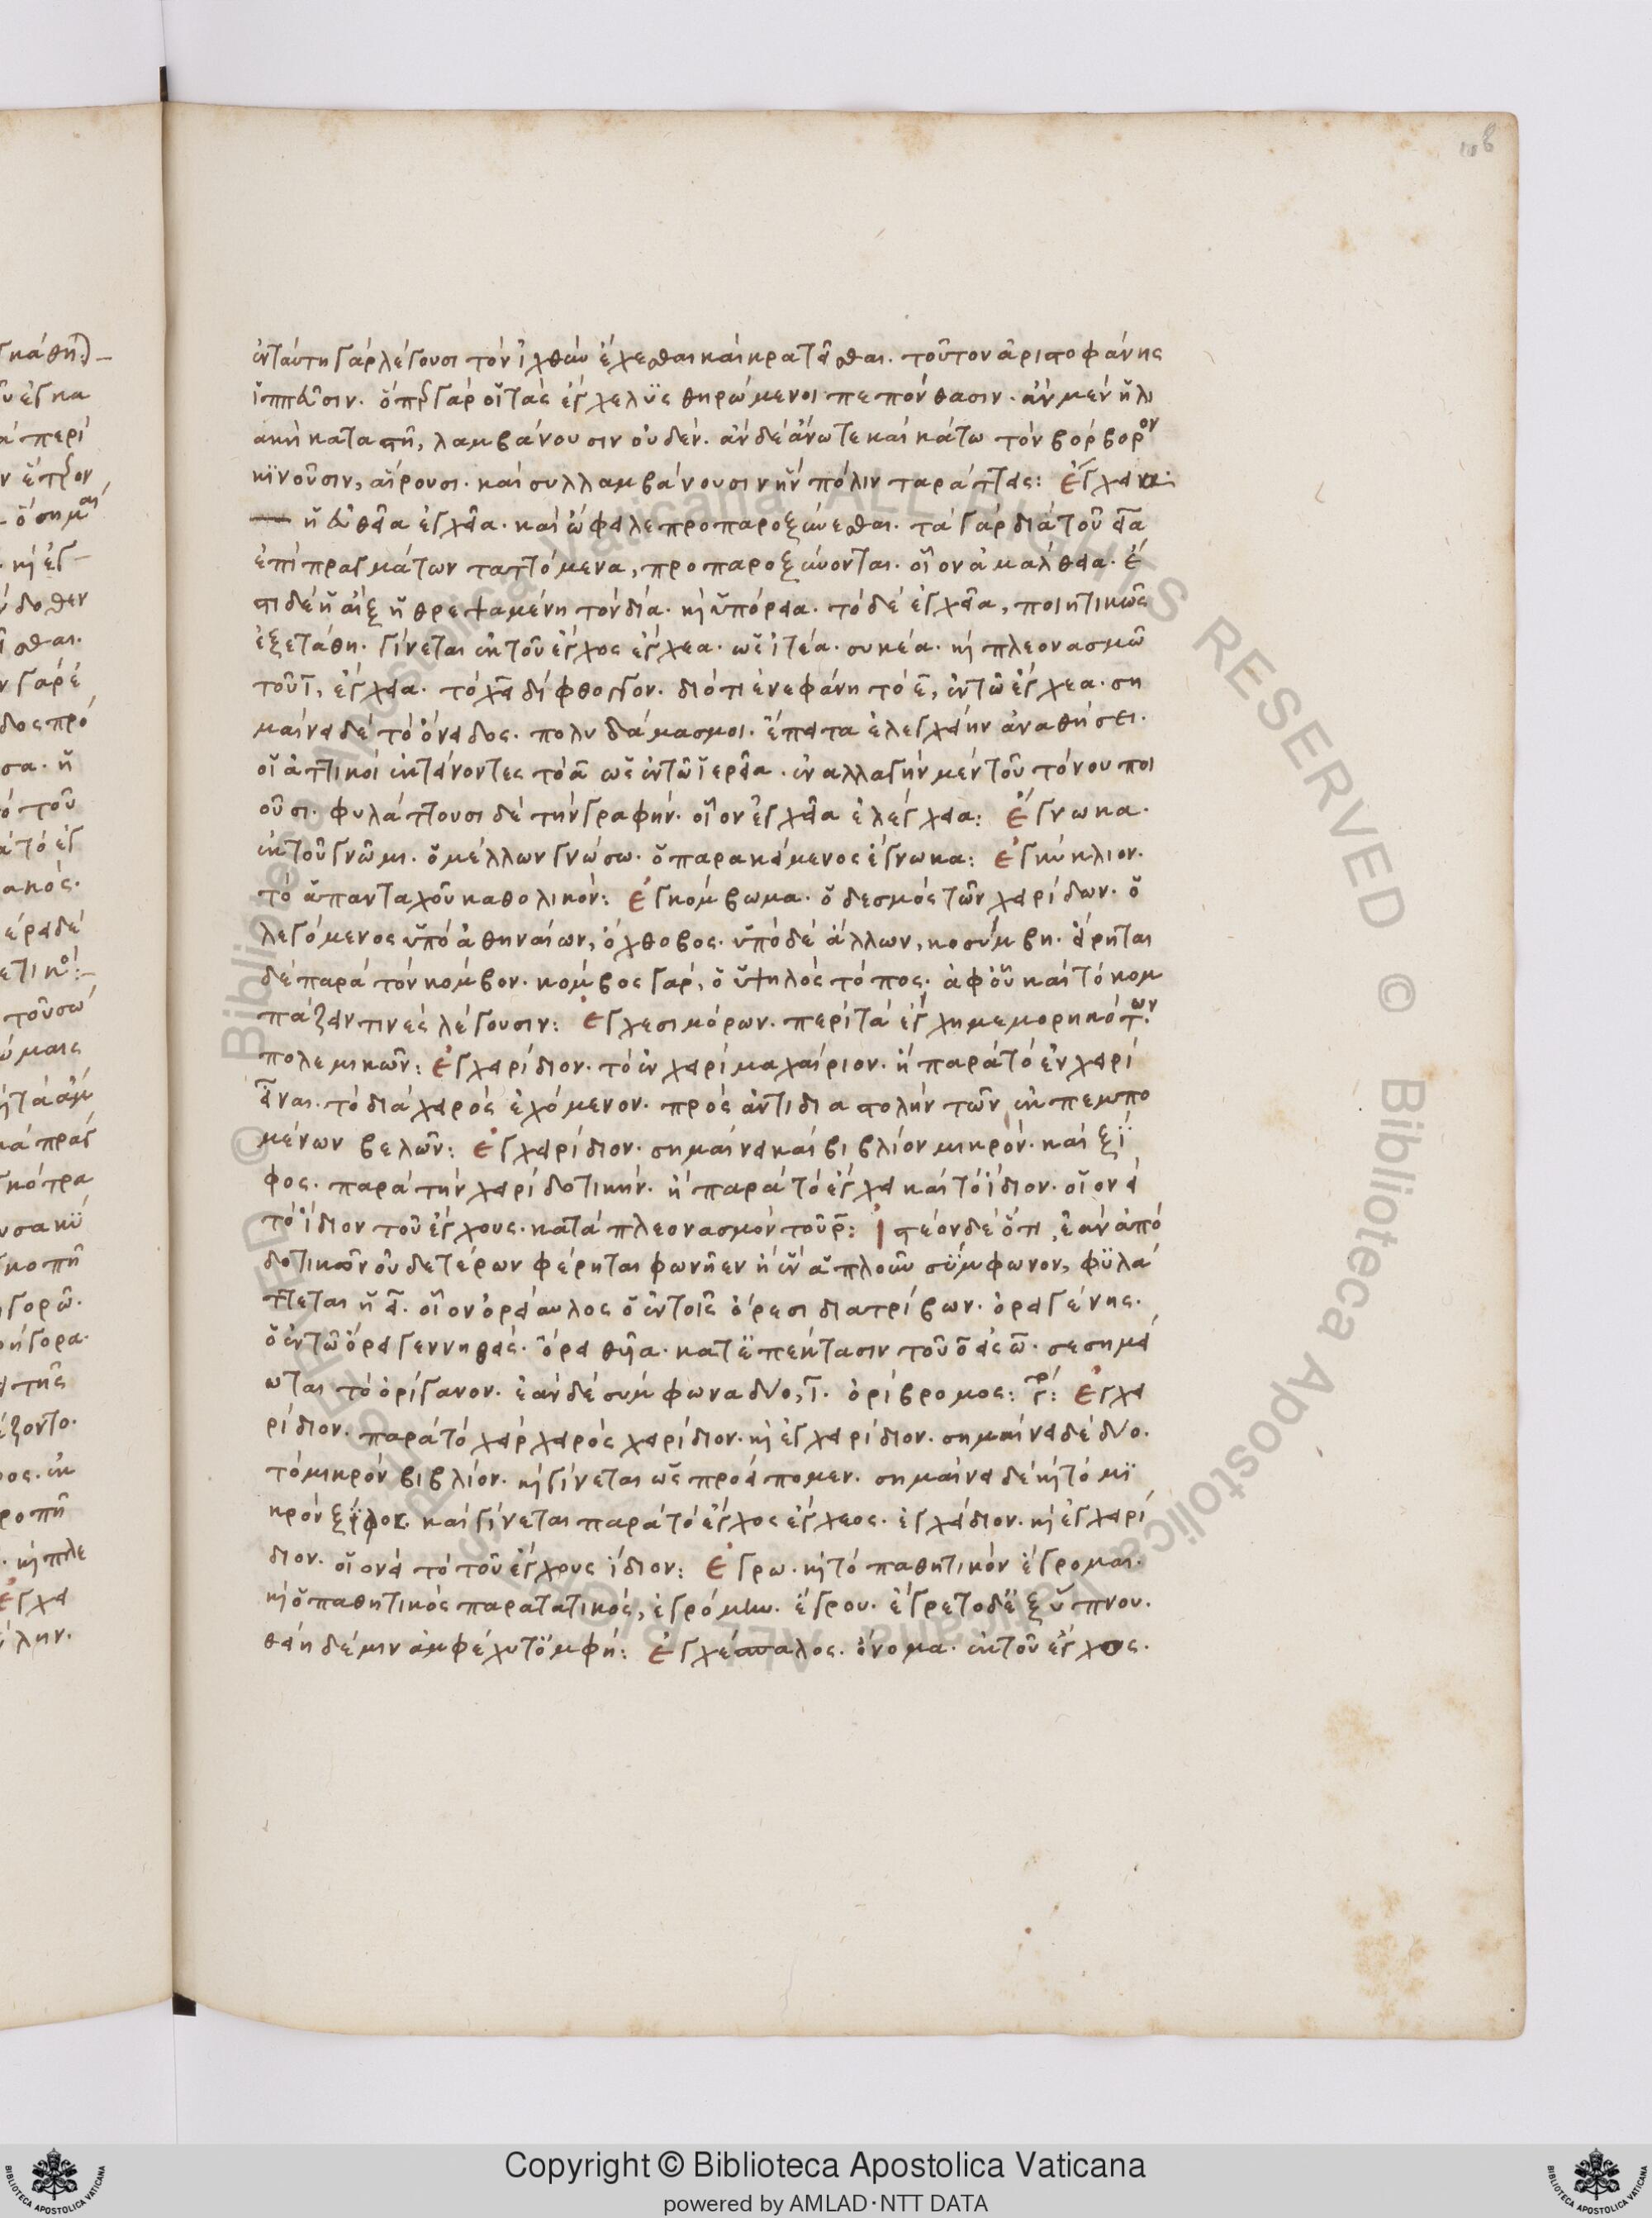 ἐνταύτη γάρ λέγουσι τόν ἰχθύν ἔχεσθαι καί κρατεῖσθαι. τοῦτον ἀριστοφάνης
ἱππεῦσιν. ὅπερ γάρ οἱ τάς ἐγχέλϋς θηρώμενοι πεπόνθασιν. ἀν μέν ἡ λι
μνη καταστῆ, λαμβάνουσιν οὐδέν. ἀν δέ ἄνω τε καί κάτω τόν βόρβορον
κϊνοῦσιν, αἵρουσι. καί συλλαμβάνουσιν ἥν πόλιν ταράττεις: Ἐγχεια:
ἡ εὐθεῖα ἐγχεῖα. καί ὤφειλε προπαροξύνεσθαι. τά γάρ διά τοῦ εια
ἐπί πραγμάτων ταττόμενα, προπαροξύνονται. οἷον ἀμάλθεια. ἔ
στι δέ ἡ αἴξ ἡ θρεψαμένη τόν δία. καί ὑπόρεια. τό δέ ἐγχεῖα, ποιητικῶς
ἐξετάθη. γίνεται ἐκ τοῦ ἔγχος ἔγχεα. ὡς ἰτέα. συκέα. καί πλεονασμῶ
τοῦ ι, ἐγχεία. τό χει δίφθογγον. διότι ἐνεφάνη τό ε, ἐν τῶ ἔγχεα. ση
μαίνει δέ τό ὄνειδος. πολυδάμας μοι. ἔπειτα ἐλεγχείην ἀναθήσει.
οἱ ἀττικοί ἐκτείνοντες τό α ὡς ἐν τῶ ἱερεῖα. ἐναλλαγήν μέν τοῦ τόνου ποι
οῦσι. φυλάττουσι δέ τήν γραφήν. οἷον ἐγχεῖα ἐλέγχεια: Ἔγνωκα.
ἐκ τοῦ γνῶμι. ὁ μέλλων γνώσω. ὁ παρακείμενος ἔγνωκα: Ἐγκύκλιον.
τό ἁπανταχοῦ καθολικόν: Ἐγκόμβωμα. ὁ δεσμός τῶν χειρίδων. ὁ
λεγόμενος ὑπό ἀθηναίων, ὄχθοβος. ὑπό δέ ἄλλων, κοσύμβη. εἴρηται
δέ παρά τόν κόμβον. κόμβος γάρ, ὁ ὑψηλός τόπος. ἀφ' οὗ καί τό κομ
πάζειν τινές λέγουσιν: Ἐγχεσιμόρων. περί τά ἔγχη μεμορηκότων
πολεμικῶν: Ἐγχειρίδιον. τό ἐν χειρί μαχαίριον. ἤ παρά τό ἐν χειρί
εἶναι. τό διά χειρός ἐχόμενον. πρός ἀντιδιαστολήν τῶν ἐκπεμπο
μένων βελῶν: Ἐγχειρίδιον. σημαίνει καί βιβλίον μικρόν. καί ξί
φος. παρά τήν χειρί δοτικήν. ἤ παρά τό ἔγχει καί τό ἴδιον. οἱονεί
τό ἴδιον τοῦ ἔγχους. κατά πλεονασμόν τοῦ ρ: Ἰστέον δέ ὅτι, ἐάν ἀπό
δοτικῶν οὐδετέρων φέρηται φωνῆεν ἤ ἕν ἁπλοῦν σύμφωνον, φϋλά
ττεται ἡ ει. οἷον ὀρείαυλος ὁ ἐν τοῖς ὄρεσι διατρίβων. ὀρειγένης.
ὁ ἐν τῶ ὄρει γεννηθείς. ὀρειθυῖα. κατ' ἐπέκτασιν τοῦ ο εἰς ω. σεσημεί
ωται τό ὀρίγανον. ἐάν δέ σύμφωνα δύο, ι. ὀρίβρομος: Ἐγχει
ρίδιον. παρά τό χείρ χειρός χειρίδιον. καί ἐγχειρίδιον. σημαίνει δέ δύο.
τό μικρόν βιβλίον. καί γίνεται ὡς προείπομεν. σημαίνει δέ καί τό μϊ
κρόν ξίφος. καί γίνεται παρά τό ἔγχος ἔγχεος. ἐγχείδιον. καί ἐγχειρί
διον. οἱονεί τό τοῦ ἔγχους ἴδιον: Ἔγρω. καί τό παθητικόν ἔγρομαι.
καί ὁ παθητικός παρατατικός, ἐγρόμην. ἔγρου. ἔγρετο δέ ἐξ ὕπνου.
θείη δέ μιν ἀμφέχυτ' ὀμφή: Ἐγχέσπαλος. ὄνομα. ἐκ τοῦ ἔγχους.
© Biblioteca Apostolica Vaticana ALL RIGHTS RESERVED
Copyright © Biblioteca Apostolica Vaticana
powered by AMLAD・NTT DATA